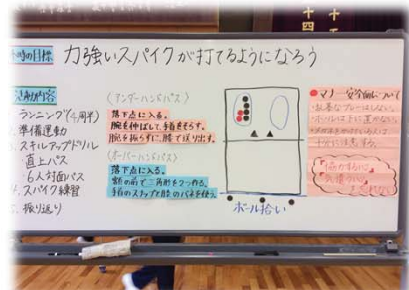 時の目標 力強いスパイクが打てるようになろう
活動内容
ランニング(4周半)
準備運動
スキルアップドリル
直上パス
6人対面パス
スパイク練習
振り返り
〈アンダーハンドパス〉
落下点に入る。
腕を伸ばして、手首をそらす。
腕を振らずに、膝で送り出す。
〈オーバーハンドパス〉
落下点に入る。
額の前で三角形をつくる。
手首のスナップと膝のバネを使う。
ボール拾い
マナー・安全面について
十分に注意する。
十四